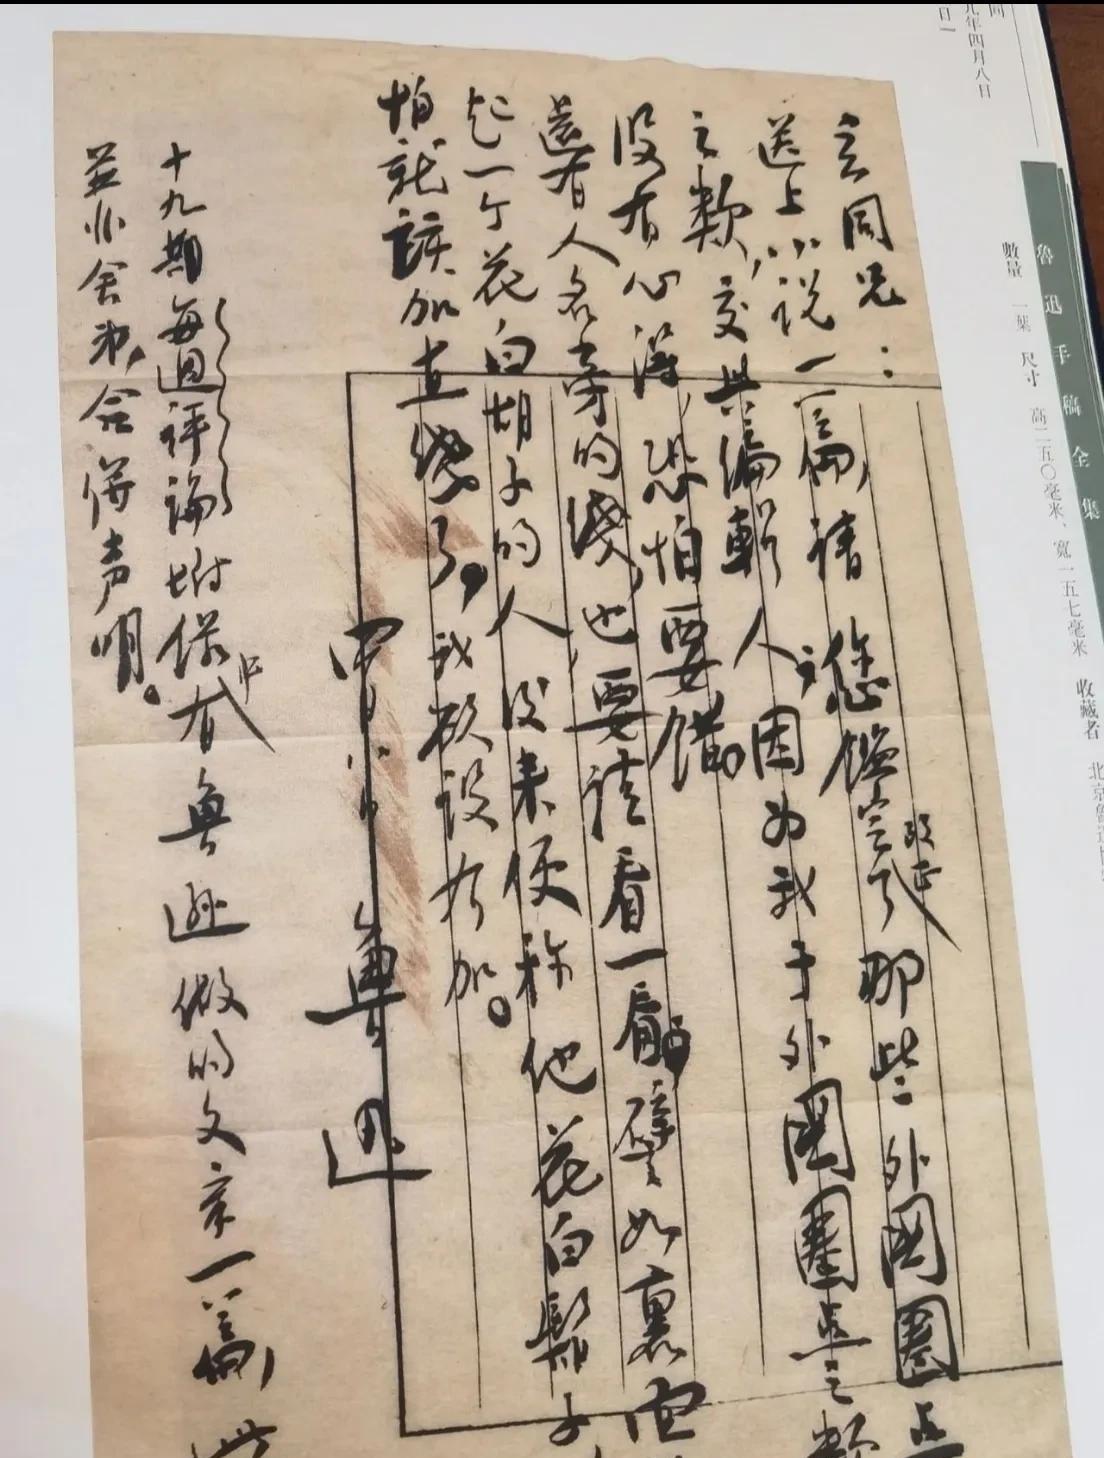 同
九年四月八日
日一
魯迅手稿全集
數量 一葉 尺寸 高二五〇毫米、寬一五七毫米 收藏者 北京魯迅
玄同兄：
送上小说一篇，请您鑑定改正了那些外国圈点
之类，交与编辑人；因为我于外国圈点之类
没有心得，恐怕要错。
还有人名旁的线，也要请看一看。譬如裏面
起一个花白胡子的人，后来便称他花白鬍子
怕就该加直线了，我却没有加。
四月八日 鲁迅
十九期每週评论附录中有鲁逊做的文章一篇，此
並非舍弟，合併声明。